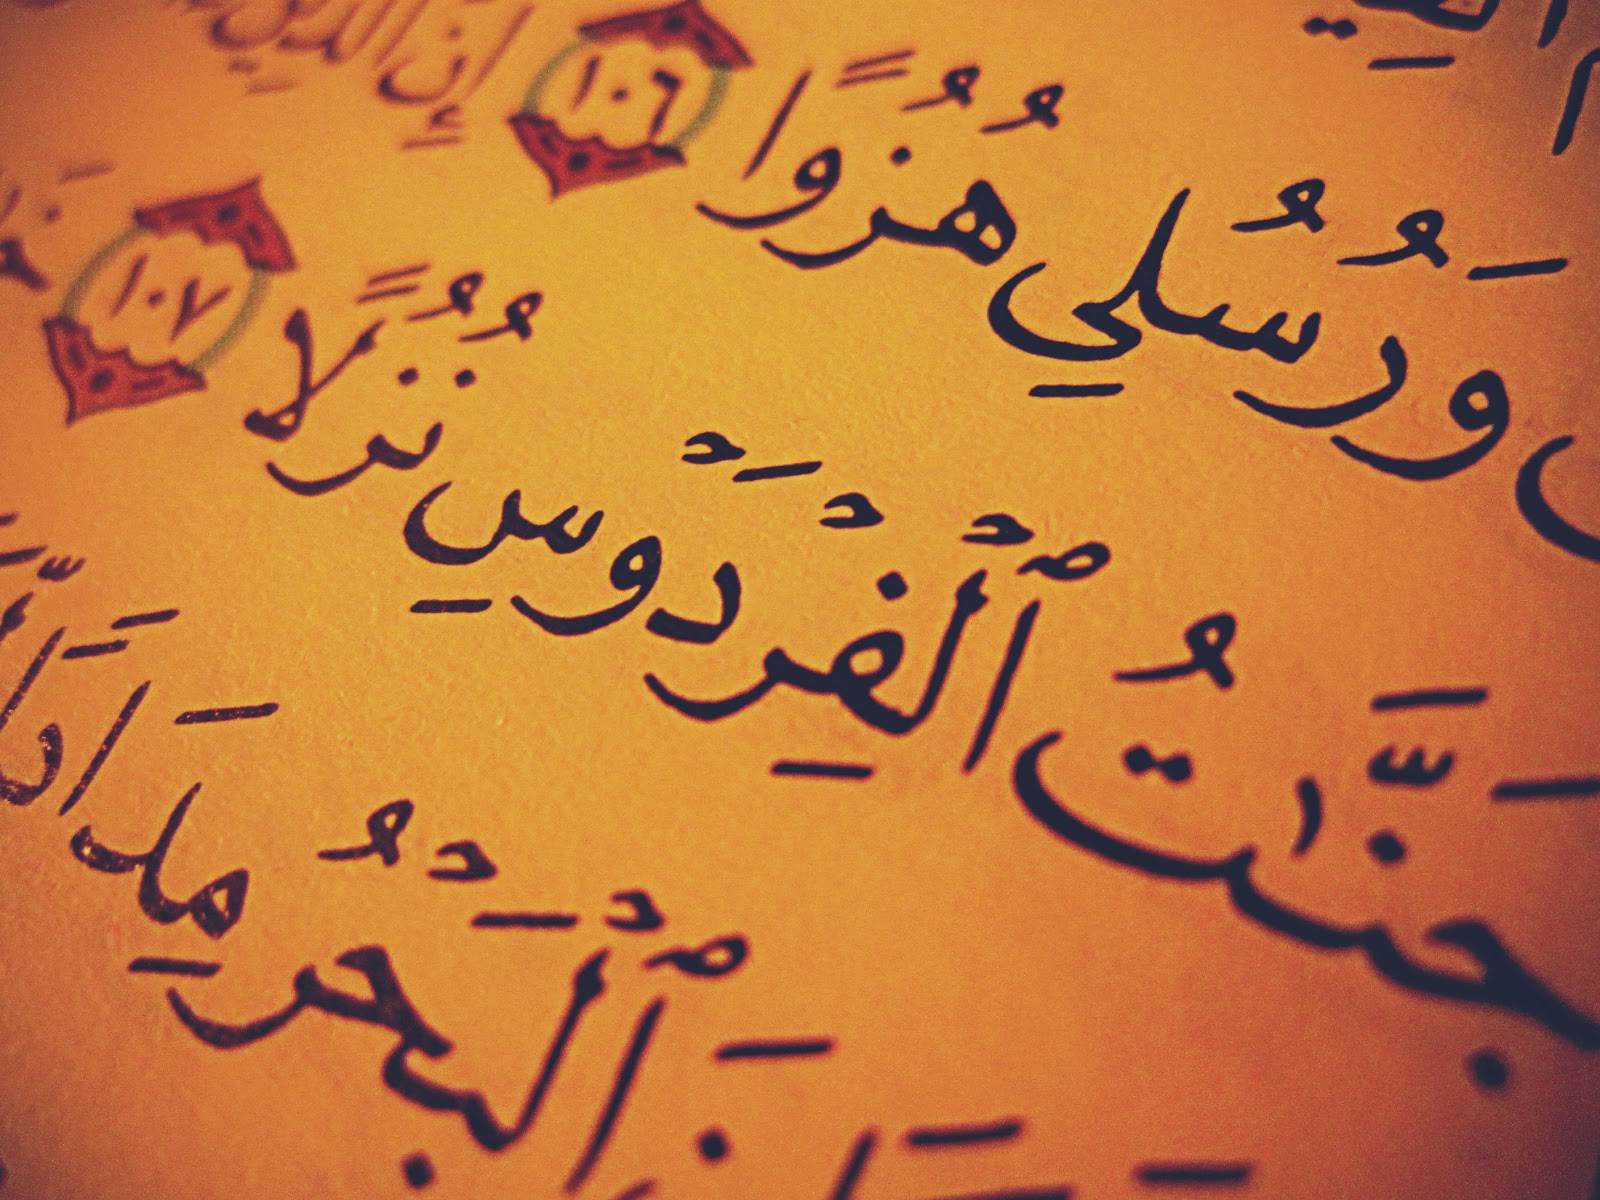 وَرُسُلِي هُزُوًا ١٠٦ إِنَّ ٱلَّذِينَ
جَنَّٰتُ ٱلۡفِرۡدَوۡسِ نُزُلًا ١٠٧
ٱلۡبَحۡرُ مِدَادٗا